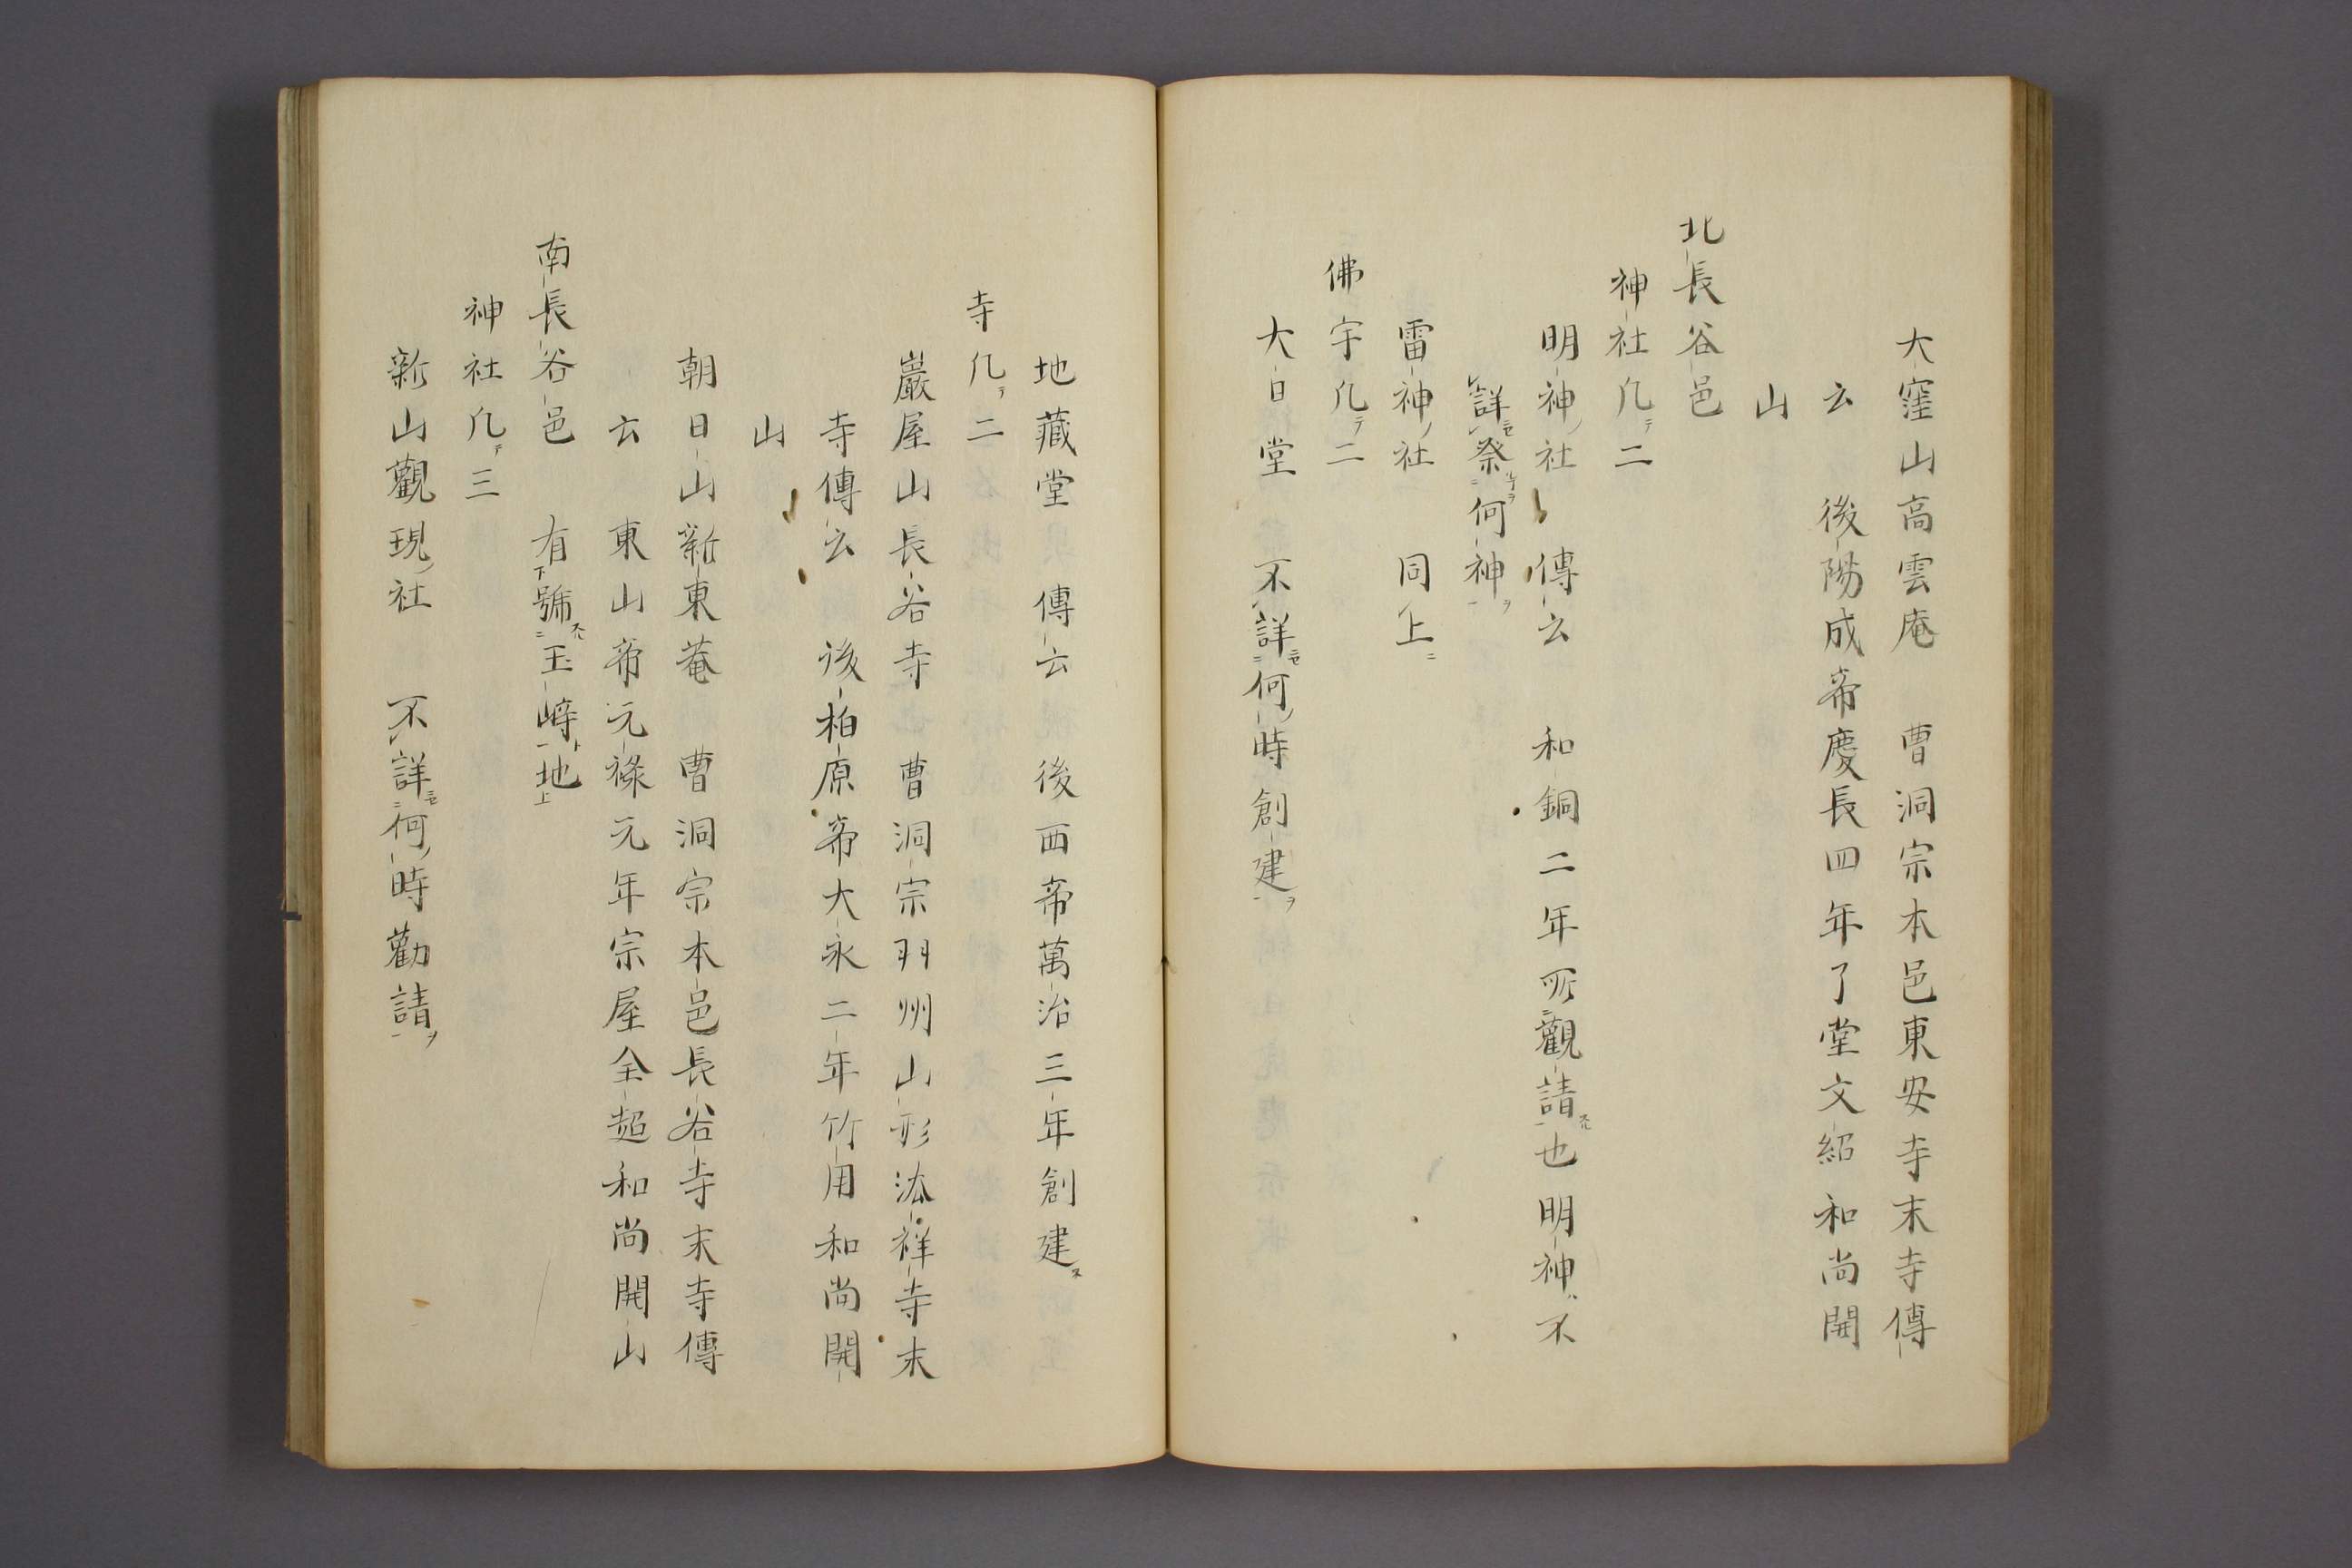 大窪山高雲庵　曹洞宗本邑東安寺末寺傳
云　後陽成帝慶長四年了堂文紹和尚開
山
北長谷邑
神社凡テ二
明神ノ社　傳云　和銅二年所観請也明神ハ不
詳祭何神ヲ
雷神ノ社　同上ニ
佛宇凡テ二
大日堂　不詳何ノ時創建ヲ
地藏堂　傳云　後西帝萬治三年創建ス
寺凡テ二
巖屋山長谷寺　曹洞宗羽州山形法祥寺末
寺傳云　後柏原帝大永二年竹用和尚開
山
朝日山新東菴　曹洞宗本邑長谷寺末寺傳
云　東山帝元祿元年宗屋全超和尚開山
南長谷邑　有下號玉﨑ト地上
神社凡テ三
新山觀現ノ社　不詳何ノ時勸請ヲ